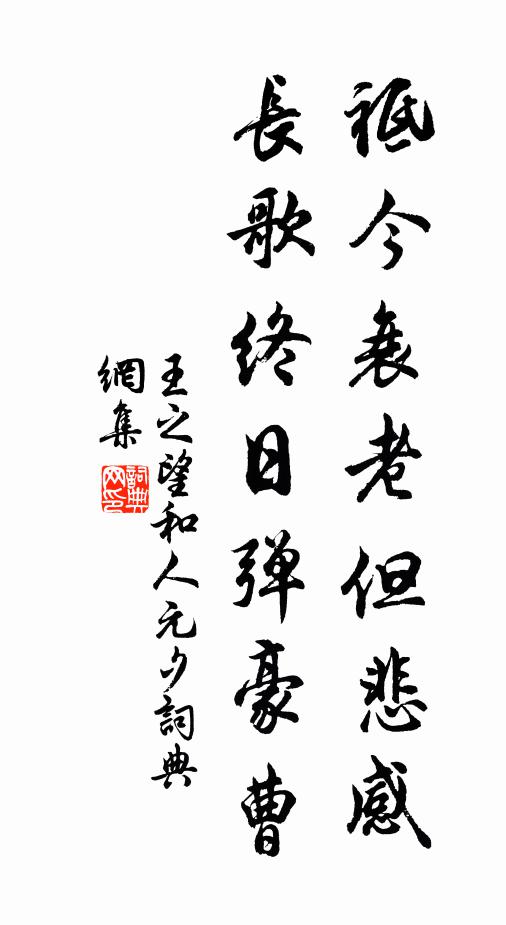 祗今衰老但悲感
長歌終日弹豪曹
王之望和人元夕詞典
網集
詞典網印